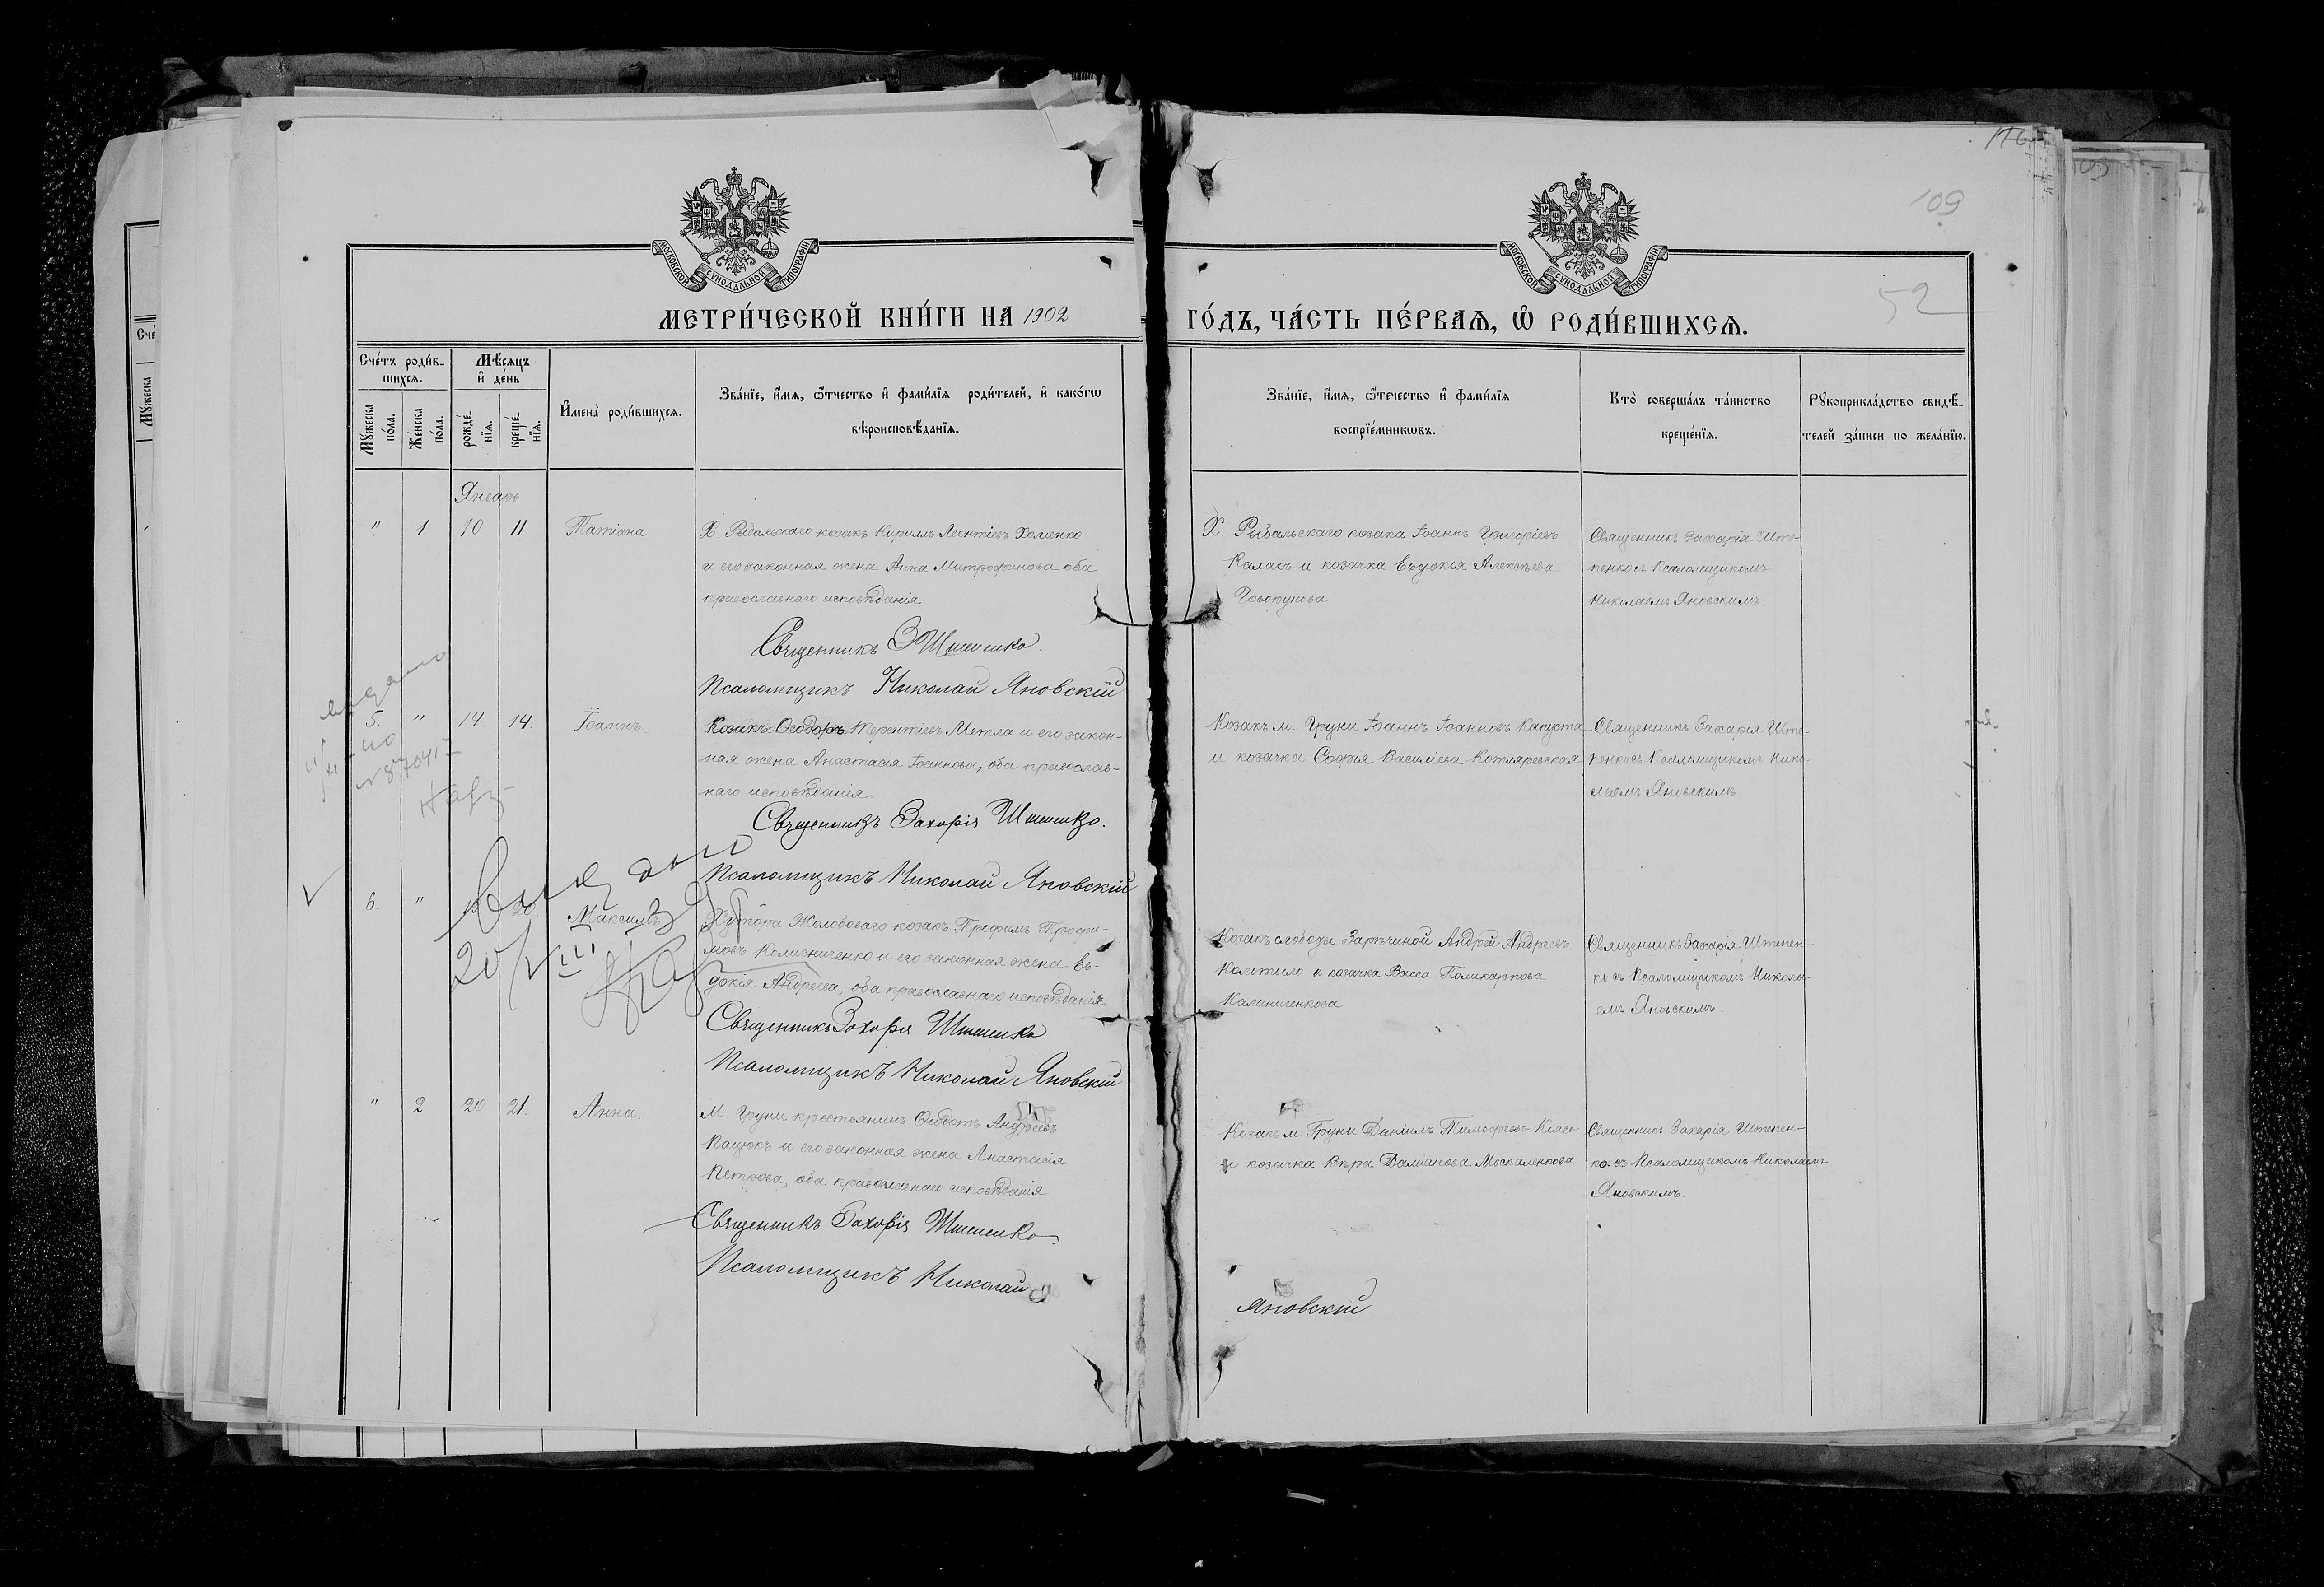 116
109
52
МОСКОВСКОЙ СѴНОДАЛЬНОЙ ТИПОГРАФІИ
МОСКОВСКОЙ СѴНОДАЛЬНОЙ ТИПОГРАФІИ
МЕТРИ́ЧЕСКОЙ КНИ́ГИ НА 1902
ГО́ДЪ, ЧА́СТЬ ПЕ́РВАѦ, Ѽ РОДИ́ВШИХСѦ.
Сче́тъ роди́в-
шихсѧ.
Мѣ́сѧцъ
и҆ де́нь
Мꙋ́жеска
по́ла.
Же́нска
по́ла.
рожде́-
нїѧ.
креще́-
нїѧ.
И҆мена̀ роди́вшихсѧ.
Зва́нїе, и҆́мѧ, ѻ҆́тчество и҆ фами́лїѧ роди́телей, и҆ како́гѡ
вѣроисповѣ́данїѧ.
Зва́нїе, и҆́мѧ, ѻ҆́течество и҆ фами́лїѧ
воспрїе́мникѡвъ.
Кто̀ соверша́лъ та́инство
креще́нїѧ.
Рꙋкоприкла́дство свидѣ́-
телей за́писи по жела́нїю.
Январь
" 1 10 11 Татіана
Х. Рыбальскаго козакъ Кириллъ Леонтіевъ Хоменко
и его законная жена Анна Митрофанова оба
православнаго исповѣданія
Священникъ З
Псаломщикъ Николай Яновскій
Х. Рыбальскаго козака Іоаннъ Григоріевъ
Калачъ и козачка Евдокія Алексѣева
Священникъ Захарія Ште-
пенко съ Псаломщикомъ
Николаемъ Яновскимъ
выдано
5. " 14 14 Іоаннъ.
Козакъ Ѳеодоръ Терентіевъ Метла и его закон-
ная жена Анастасія Іоаннова, оба православ-
наго исповѣданія
Священникъ Захарія Штепенко.
Псаломщикъ Николай Яновскій
Козакъ м. Груни Іоаннъ Іоанновъ Капуста
и козачка Софія Василіева Котляревская
Священникъ Захарія Ште-
пенко съ Псаломщикомъ Нико-
лаемъ Яновскимъ.
Выдано
20/VIII
6. " 20 Максимъ
Хутора Жолобоваго козакъ Трофимъ Трофи-
мовъ и его законная жена Ев-
докія Андреева, оба православнаго исповѣданія
Священникъ Захарія Штепенко
Псаломщикъ Николай Яновскій
Козакъ слободы Зарѣчиной Андрей Андреевъ
и козачка Васса Поликарпова
Калиниченкова
Священникъ Захарія Штепен-
ко съ Псаломщикомъ Никола-
емъ Яновскимъ.
" 2 20 21. Анна.
М. Груни крестьянинъ Ѳеодотъ Андреевъ
Пацюкъ и его законная жена Анастасія
Петрова, оба православнаго исповѣданія
Священникъ Захарія Штепенко.
Псаломщикъ Николай
Яновскій
Козакъ м. Груни Даніилъ
и козачка Вѣра Даміанова Москаленкова
Священникъ Захарія Штепен-
ко съ Псаломщикомъ Николаемъ
Яновскимъ.